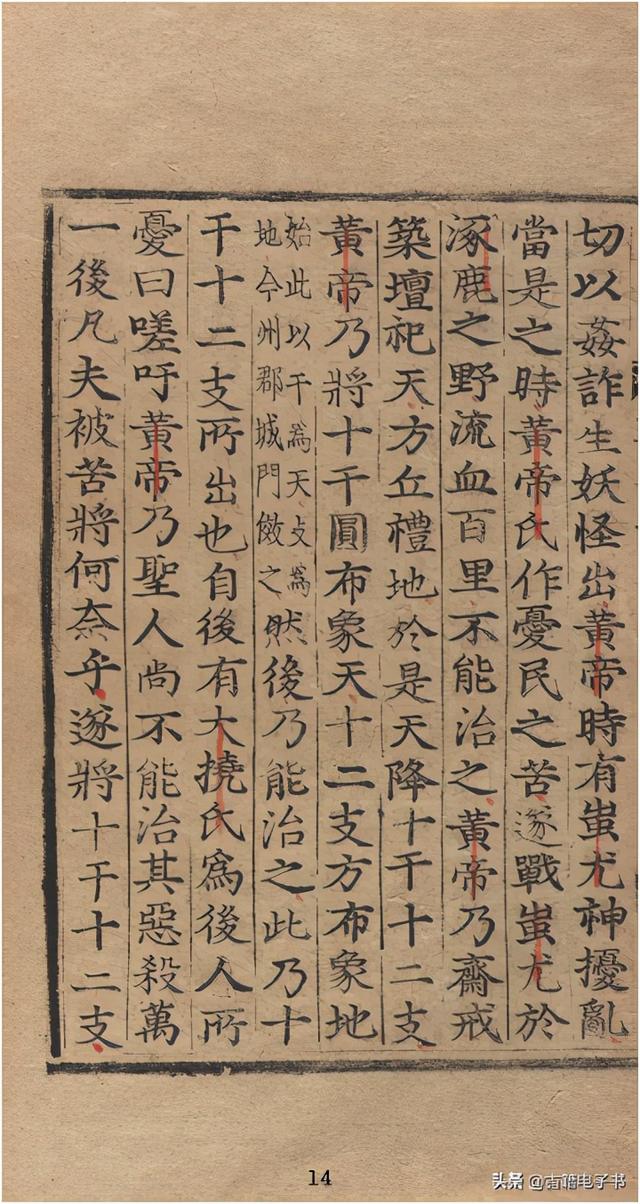 切以姦詐生妖怪出黃帝時有蚩尤神擾亂
當是之時黃帝氏作憂民之苦遂戰蚩尤於
涿鹿之野流血百里不能治之黃帝乃齋戒
築壇祀天方丘禮地於是天降十干十二支
黃帝乃將十干圓布象天十二支方布象地
始此以干為天攴為
地今州郡城門倣之
然後乃能治之此乃十
干十二支所出也自後有大撓氏為後人所
憂曰嗟吁黃帝乃聖人尚不能治其惡殺萬
一後凡夫被苦將何奈乎遂將十干十二支
14
头条@古籍电子书